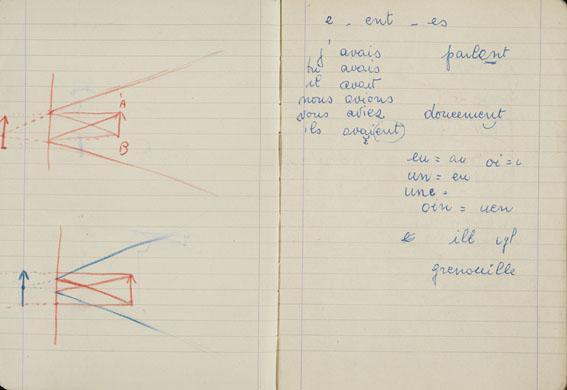 A
B
e - ent - es
j'avais parlent
tu avais
il avait
nous avions
vous aviez doucement
ils avai(ent)
eu = au oi =
un = eu
une =
oin = uen
ill
grenouille